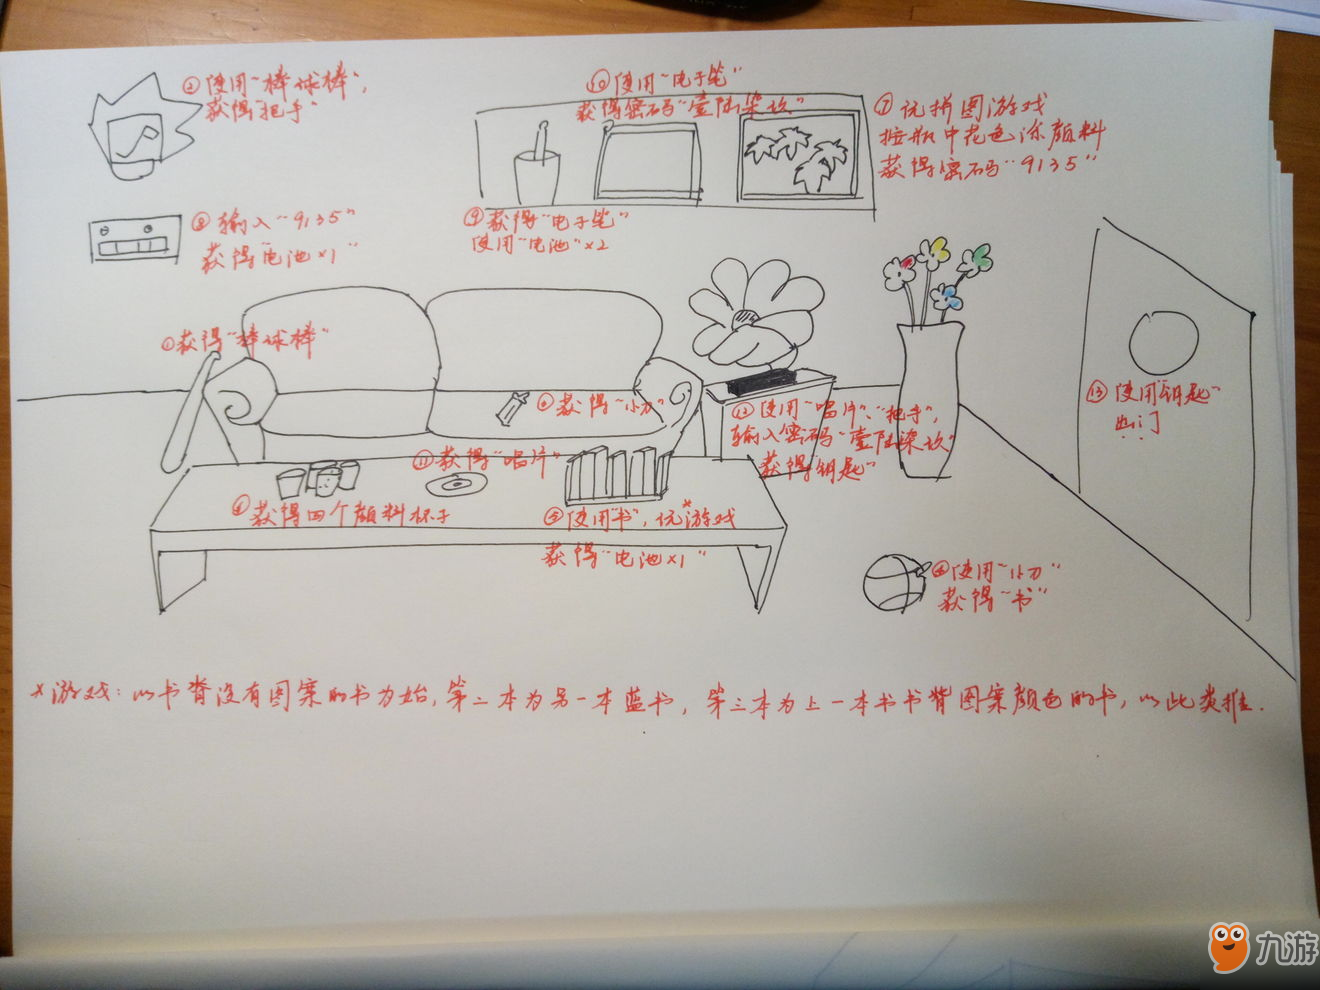 ②使用“棒球棒”,
获得“把手”
⑩使用“电子笔”
获得密码“壹陆柒玖”
⑦玩拼图游戏
按瓶中花色涂颜料
获得密码“9135”
⑧输入“9135”
获得“电池×1”
⑨获得“电子笔”
使用“电池”×2
①获得“棒球棒”
获得“小刀”
⑬使用“钥匙”
出门
⑫使用“唱片”、“把手”,
输入密码“壹陆柒玖”
获得钥匙”
⑪获得“唱片”
获得四个颜料杯子
⑤使用“书”,玩*游戏
获得“电池×1”
④使用“小刀”
获得“书”
*游戏:以书脊没有图案的书为始,第二本为另一本蓝书,第三本为上一本书书背图案颜色的书,以此类推.
九游